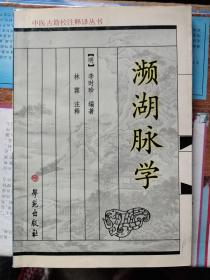 中医古籍校注释译丛书
濒湖脉学
[明] 李时珍 编著
林霖 注释
学苑出版社